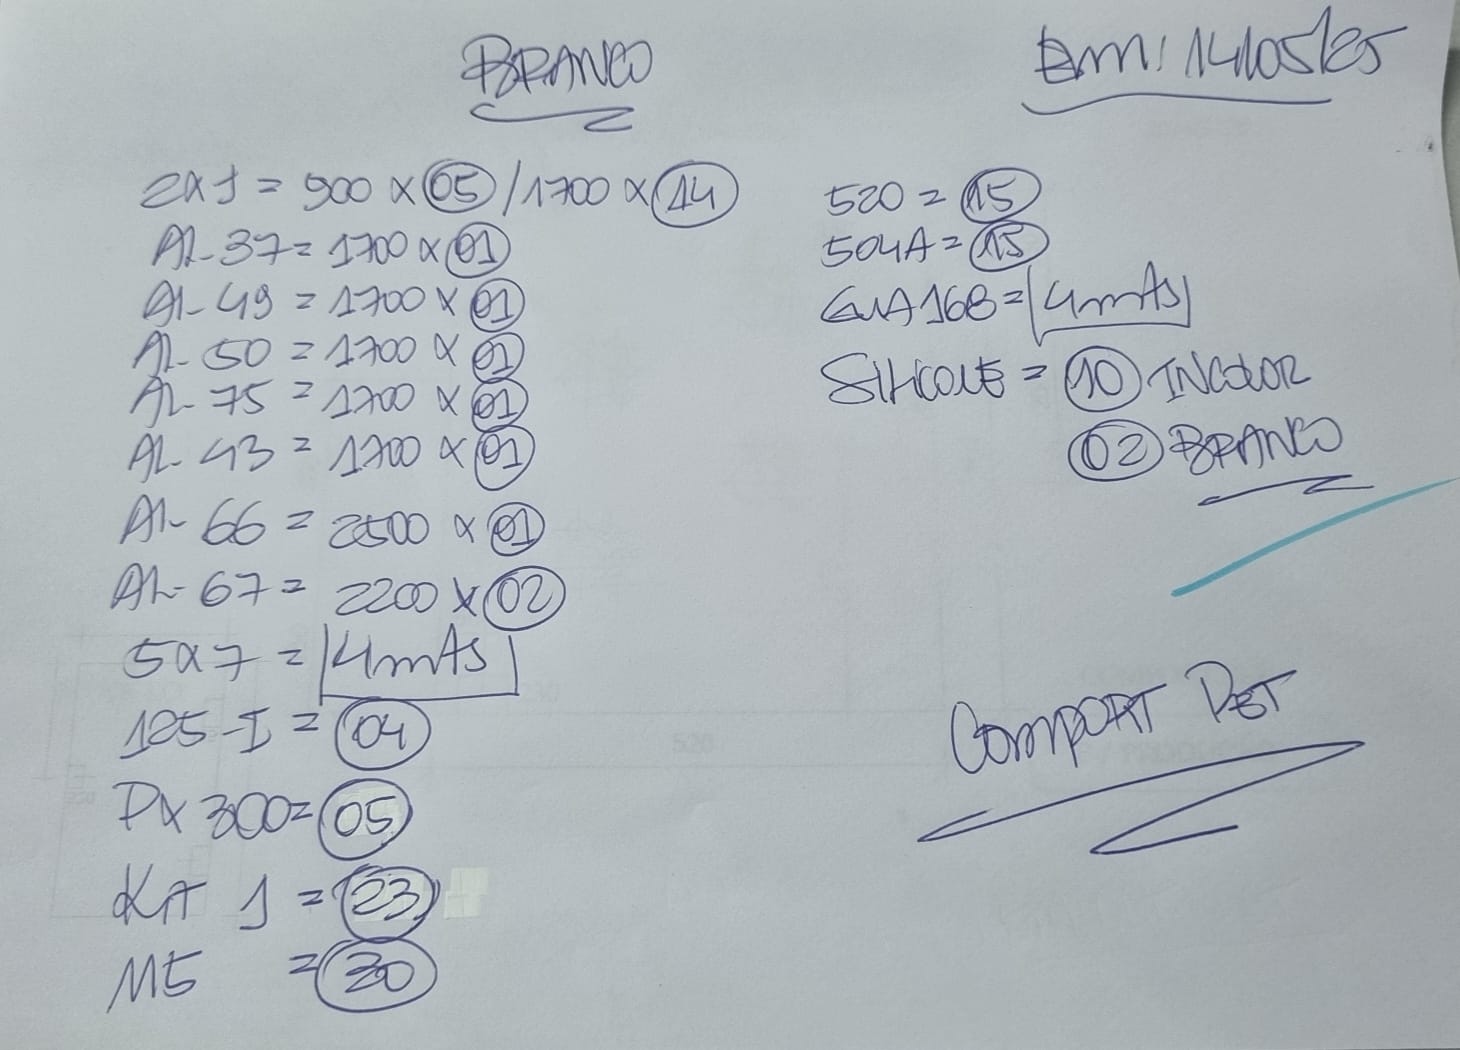 BRANCO
Em: 14/05/25
2x1 = 900 x 05 / 1700 x 14
AL-37 = 1700 x 01
AL-49 = 1700 x 01
AL-50 = 1700 x 01
AL-75 = 1700 x 01
AL-43 = 1700 x 01
AL-66 = 2500 x 01
AL-67 = 2200 x 02
5x7 = 4mts
125-I = 04
PX 300 = 05
KIT 1 = 23
M5 = 30
520 = 15
504A = 15
GUA168 = 4mts
SILICONE = 10 INCOLOR
02 BRANCO
COMPORT PET